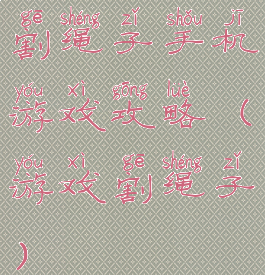 gē shéng zǐ shǒu jī
割绳子手机
yóu xì gōng lüè
游戏攻略（
yóu xì gē shéng zǐ
游戏割绳子
）